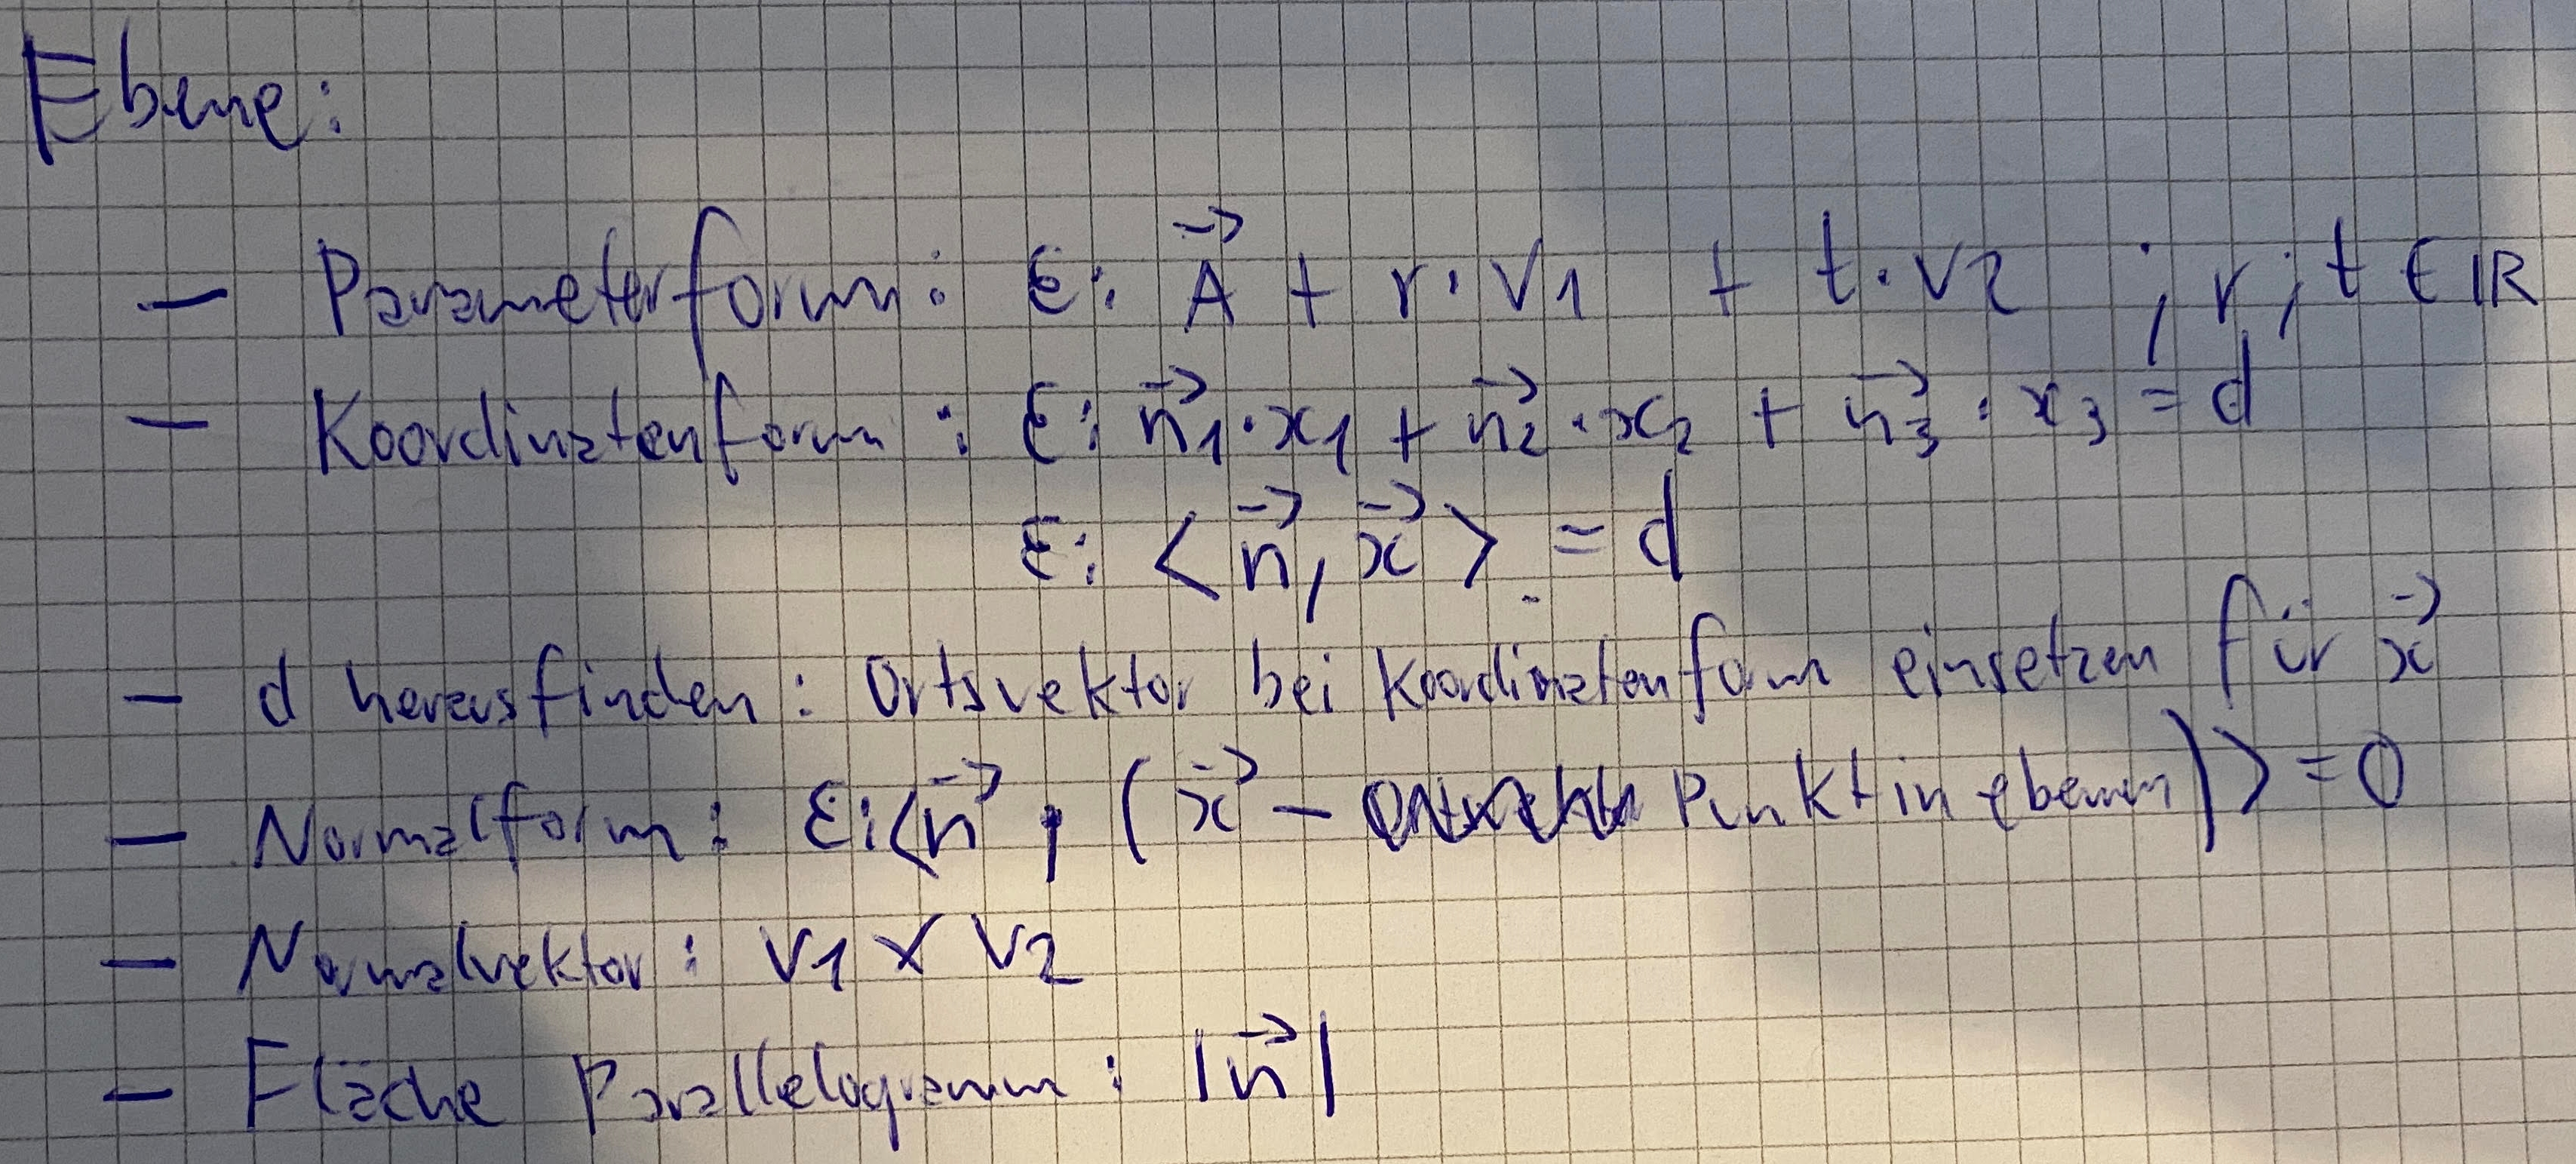 Ebene:
– Parameterform: E: A⃗ + r · v1 + t · v2 ; r ; t ∈ ℝ
– Koordinatenform : E: n⃗₁ · x₁ + n⃗₂ · x₂ + n⃗₃ · x₃ = d
E: < n⃗, x⃗ > = d
– d herausfinden : Ortsvektor bei Koordinatenform einsetzen für x⃗
– Normalform : E: < n⃗ , ( x⃗ – Punkt in ebenen ) > = 0
– Normalvektor : v1 × v2
– Fläche Parallelogramm : | n⃗ |